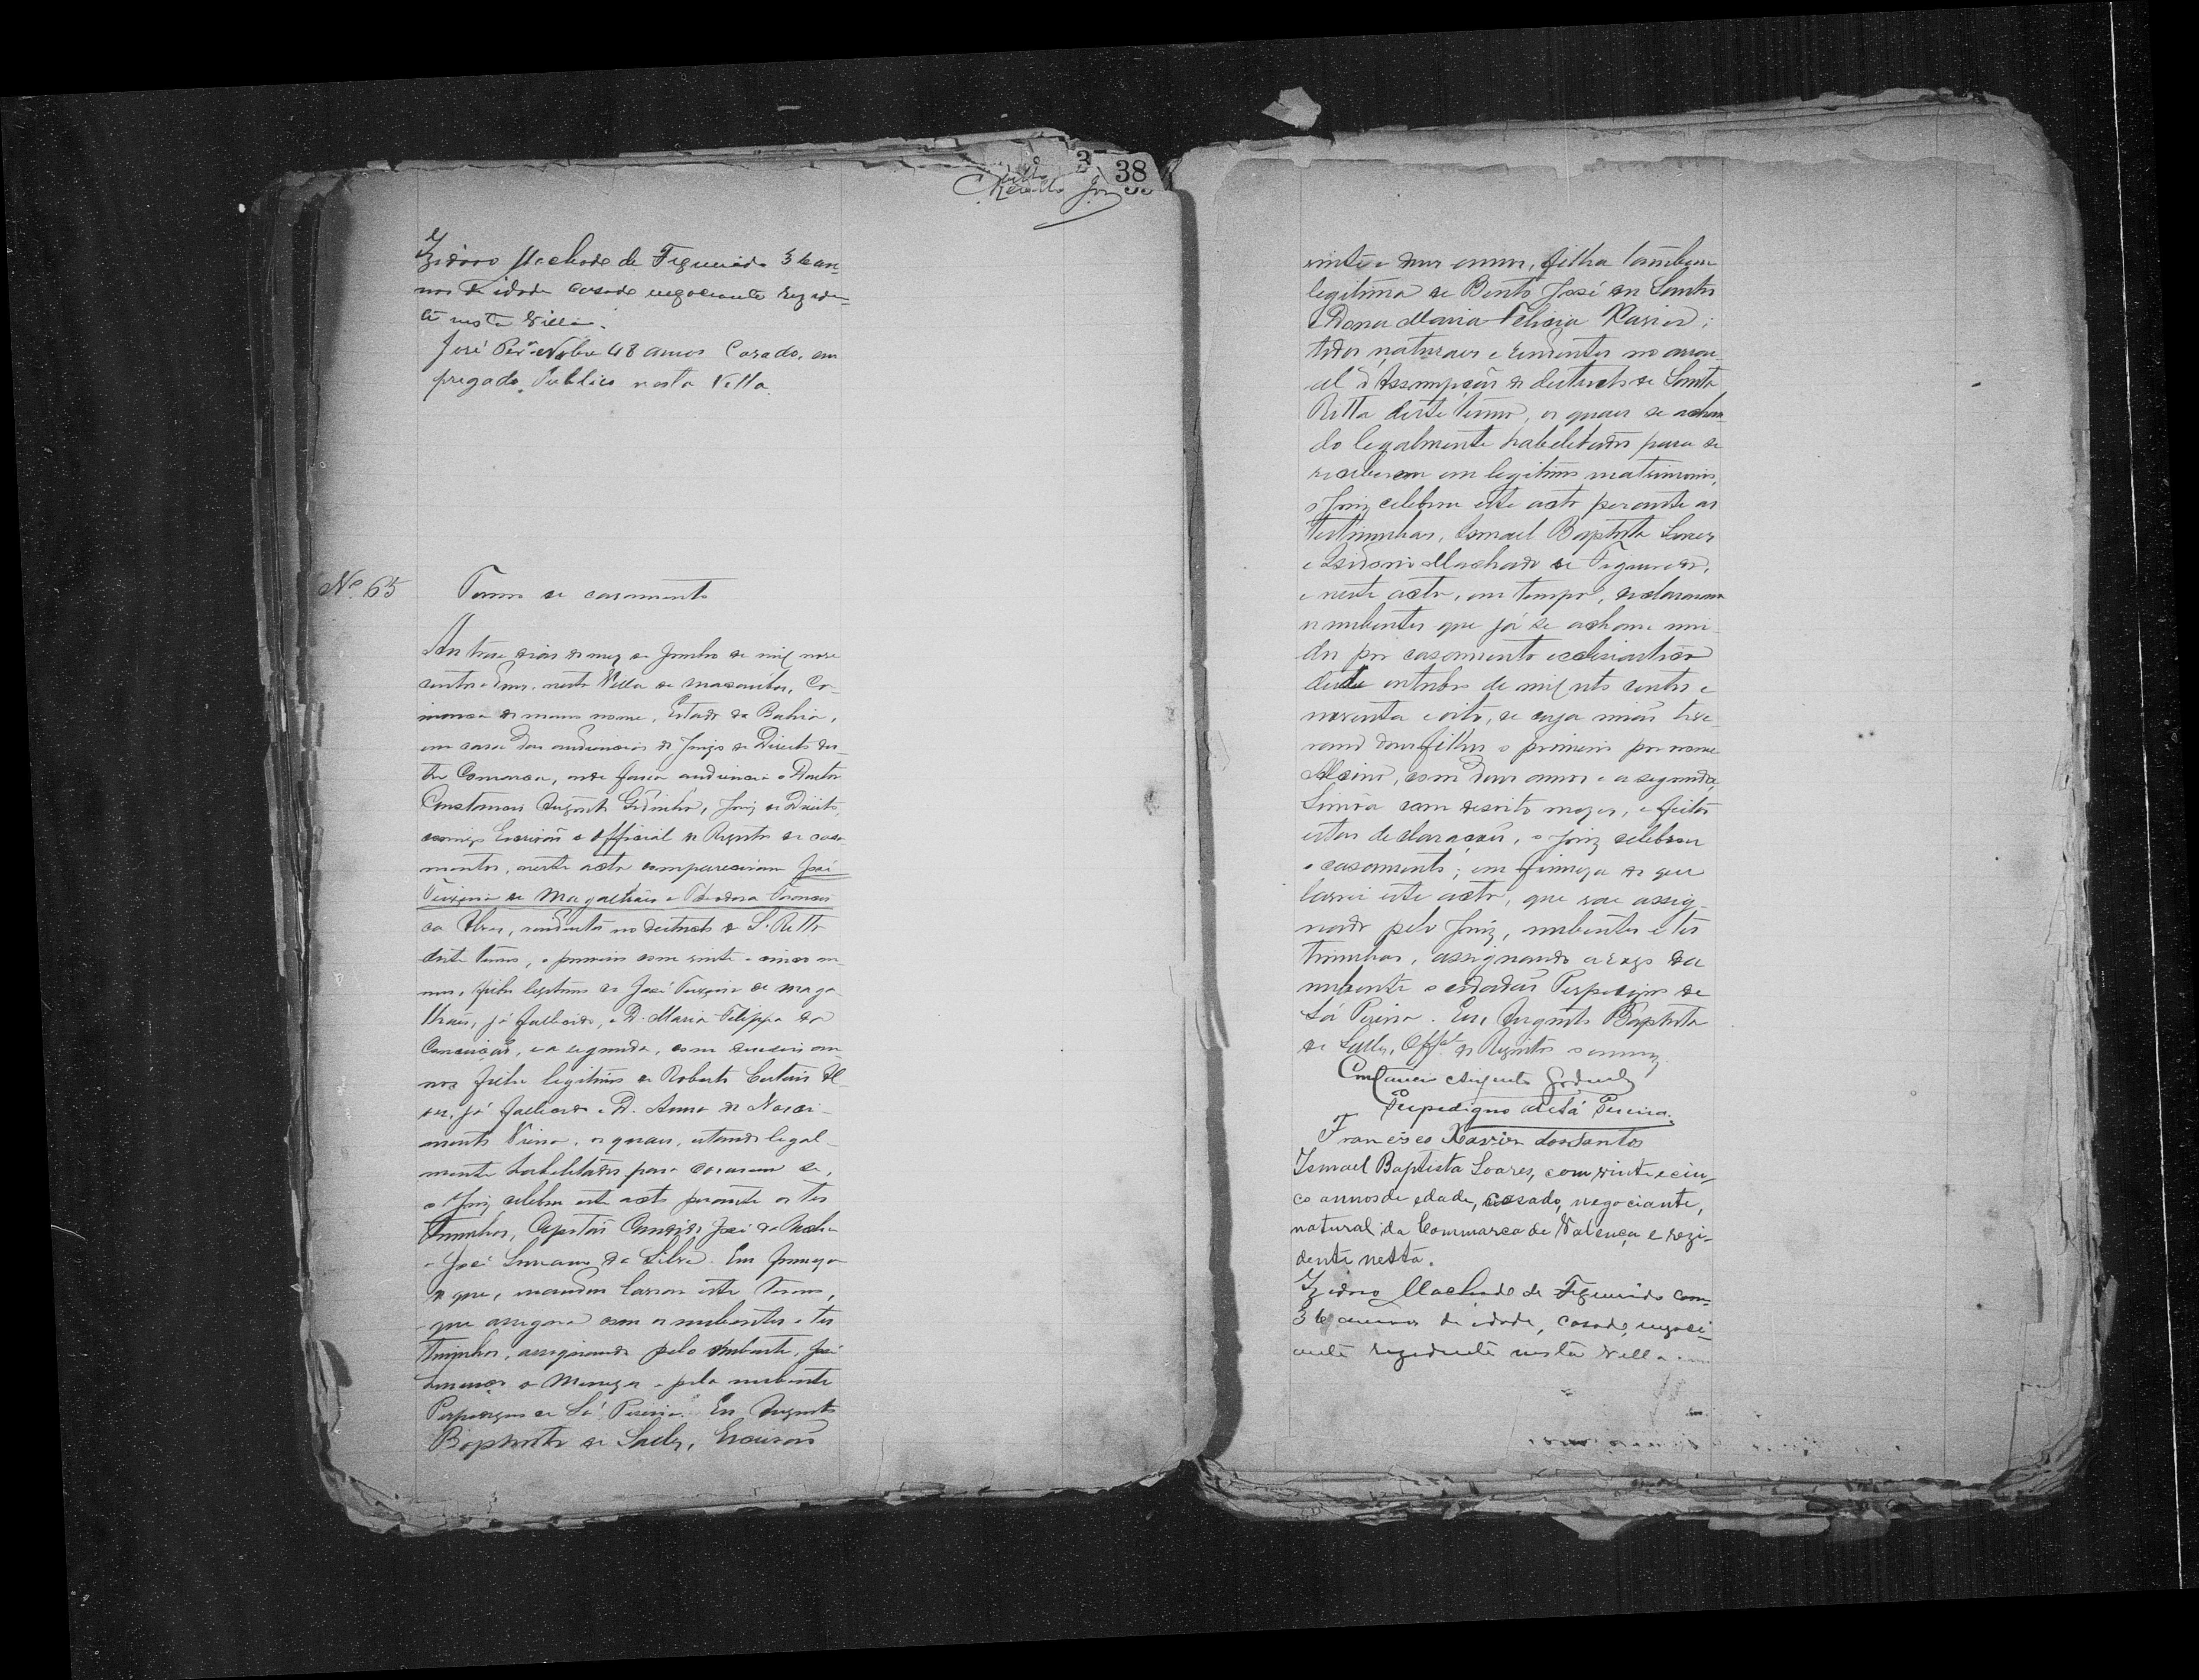 38
Izidoro Machado de Figueirêdo 36 an-
nos de idade casado negociante reziden-
te nesta Villa.
José Per.ª Nobre 48 annos Casado, em
pregado Publico nesta Villa.
Nº 65
Termo de casamento
Aos treze dias do mez de Junho de mil nove
centos e dous, nesta Villa de Maracás, Co-
marca do mesmo nome, Estado da Bahia,
em casa das audiencias do Juizo de Direito des-
ta Comarca, onde fazia audiencia o Doutor
Constancio Augusto Godinho, Juiz de Direito,
comigo Escrivão e Official do Registro de casa-
mentos, neste acto compareceram José
Teixeira de Magalhães e Theodora
Alves, residentes no districto de S. Ritta
deste termo, o primeiro com vinte e cinco an-
nos, filho legitimo de José Teixeira de Maga-
lhães, já fallecido, e D. Maria Filippa da
Conceição, e a segunda, com dezeseis an-
nos filha legitima de Roberto Al-
ves, já fallecido e D. Anna do Nasci-
mento, os quaes, estando legal-
mente habilitados para casarem se,
o Juiz celebrou este acto perante as tes
timunhas, Capitão José da Rocha
e José da Silva. Em firmeza
do que, mandou lavrar este termo,
que assigna com os nubentes e tes
timunhas, assignando pelo nubente, José
de Menezes e pela nubente
Perpedigno de Sá Pereira. Eu Augusto
Baptista de Salles, Escrivão
vinte e um annos, filha tambem
legitima de Bento José dos Santos
e Dona Maria Felicia Xavier;
todos naturaes e residentes no arrai-
al d'Assumpção do districto de Santa
Ritta deste termo, os quaes se achan-
do legalmente habelitados para se
receberem em legitimo matrimonio,
o Juiz celebrou este acto perante as
testimunhas, Ismael Baptista Soares
e Isidoro Machado de Figueiredo,
e neste acto, em tempo, declararam
os nubentes que já se acham uni-
dos por casamento ecclesiastico
desde outubro de mil oito centos e
noventa e oito, de cuja união tive-
ram dous filhos o primeiro por nome
Alcino, com dous annos e a segunda,
com desoito mezes, e feitas
estas declarações, o Juiz celebrou
o casamento; em firmeza do que
lavrei este acto, que vae assig-
nado pelo Juiz, nubentes e tes
timunhas, assignando a rogo da
nubente o cidadão Perpedigno de
Sá Pereira. Eu, Augusto Baptista
de Salles, Offal. do Registro o escrevi.
Constancio Augusto Godinho
Perpedigno de Sá Pereira.
Francisco Xavier dos Santos
Ismael Baptista Soares, com vinte e cin-
co annos de edade, casado, negociante,
natural da Commarca de Valença e rezi-
dente nesta.
Izidoro Machado de Figueirêdo com
36 annos de idade, casado, negoci-
ante rezidente nesta Villa